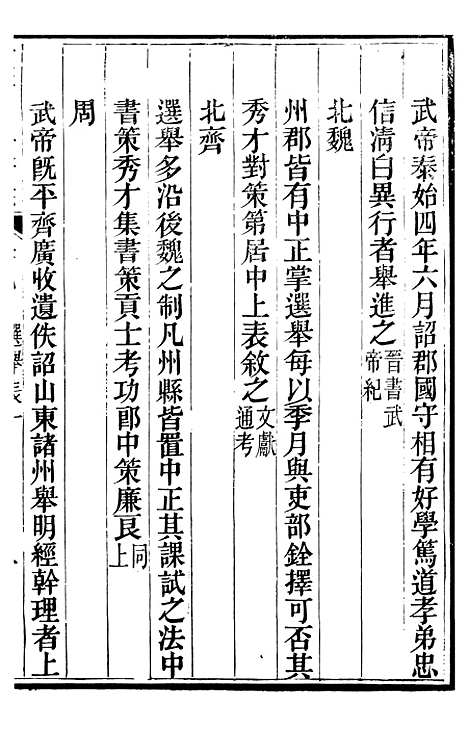 武帝泰始四年六月詔郡國守相有好學篤道孝弟忠
信清白異行者舉進之晉書武帝紀
北魏
州郡皆有中正掌選舉每以季月與吏部銓擇可否其
秀才對策第居中上表敘之文獻通考
北齊
選舉多沿後魏之制凡州縣皆置中正其課試之法中
書策秀才集書策貢士考功郎中策廉良同上
周
武帝旣平齊廣收遺佚詔山東諸州舉明經幹理者上
選舉表一